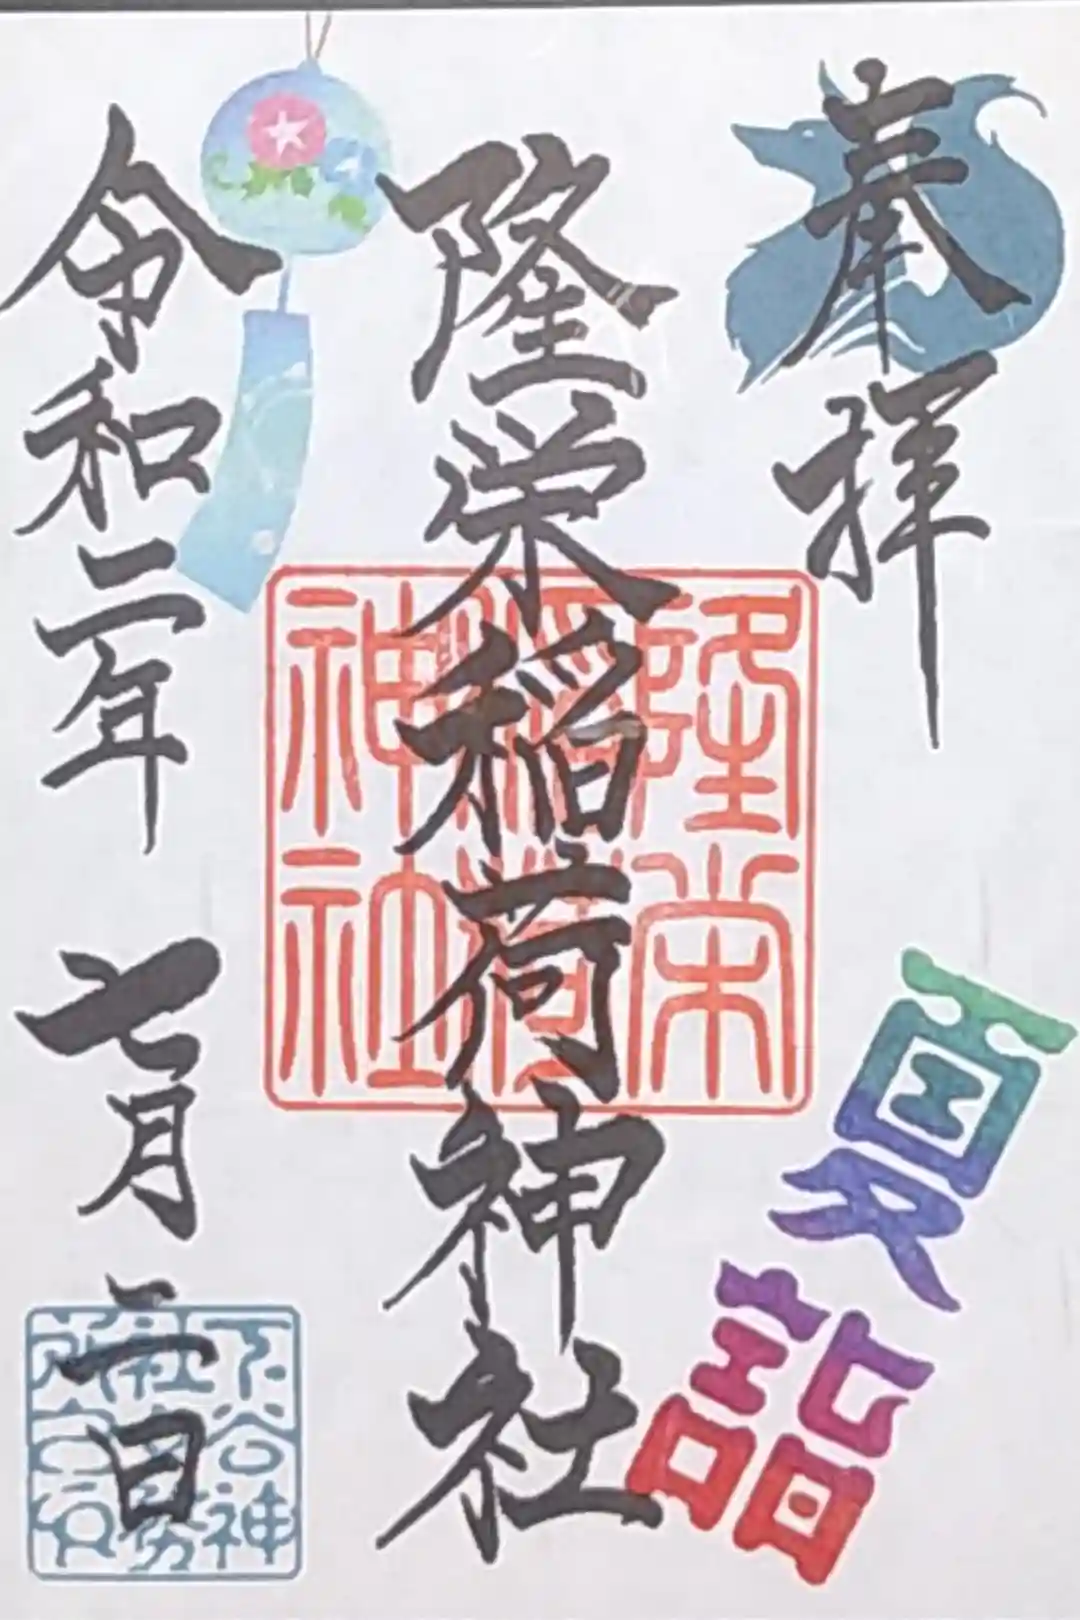 奉拝
夏詣
隆栄稲荷神社
隆栄
稲荷
神社
令和二年 七月二日
下谷神
社務
所之印